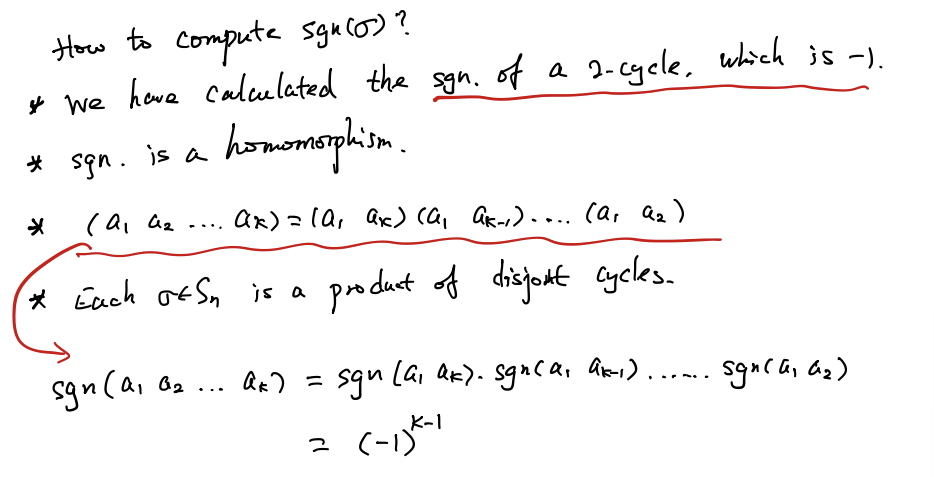 How to compute sgn(σ)?
* We have calculated the sgn. of a 2-cycle, which is -1.
* sgn. is a homomorphism.
* (a₁ a₂ .... aₖ) = (a₁ aₖ) (a₁ aₖ₋₁) .... (a₁ a₂)
* Each σ∈Sₙ is a product of disjoint cycles.
sgn(a₁ a₂ ... aₖ) = sgn(a₁ aₖ). sgn(a₁ aₖ₋₁) ...... sgn(a₁ a₂)
= (-1)ᵏ⁻¹